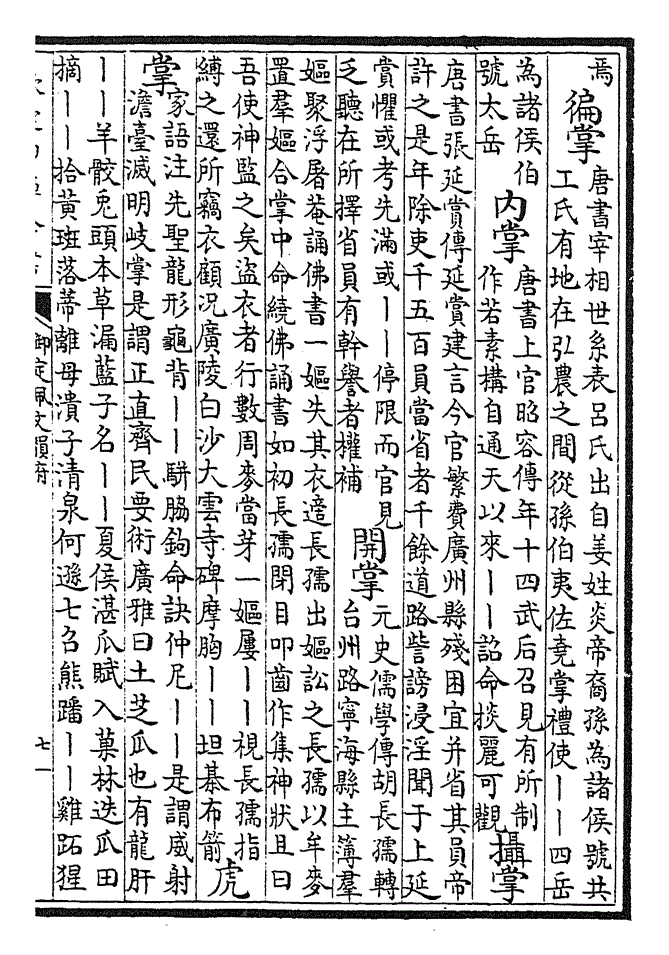 焉
徧掌
唐書宰相世系表呂氏出自姜姓炎帝裔孫為諸侯號共
工氏有地在弘農之間從孫伯夷佐堯掌禮使——四岳
為諸侯伯
號太岳
內掌
唐書上官昭容傳年十四武后召見有所制
作若素構自通天以來——詔命掞麗可觀
攝掌
唐書張延賞傳延賞建言今官繁費廣州縣殘困宜并省其員帝
許之是年除吏千五百員當省者千餘道路訾謗浸淫聞于上延
賞懼或考先滿或——停限而官見
乏聽在所擇省員有幹譽者權補
開掌
元史儒學傳胡長孺轉
台州路寧海縣主簿羣
嫗聚浮屠菴誦佛書一嫗失其衣適長孺出嫗訟之長孺以牟麥
置羣嫗合掌中命繞佛誦書如初長孺閉目叩齒作集神狀且曰
吾使神監之矣盜衣者行數周麥當芽一嫗屢——視長孺指
縛之還所竊衣顧況廣陵白沙大雲寺碑摩胸——坦綦布箭
虎
掌
家語注先聖龍形龜背——駢脇鉤命訣仲尼——是謂威射
澹臺滅明岐掌是謂正直齊民要術廣雅曰土芝瓜也有龍肝
——羊骹兔頭本草漏藍子名——夏侯湛瓜賦入菓林迭瓜田
摘——拾黃斑落蒂離母潰子清泉何遜七召熊蹯——雞跖猩
御定佩文韻府